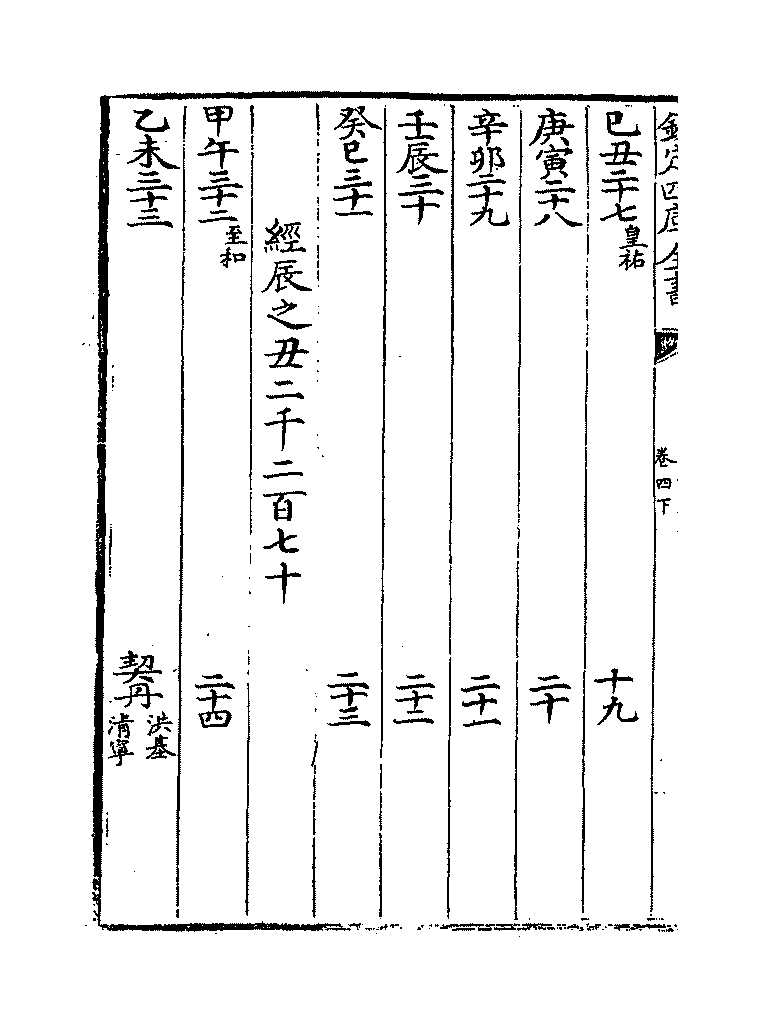 欽定四庫全書
卷四下
己丑二十七皇祐 十九
庚寅二十八 二十
辛卯二十九 二十一
壬辰三十 二十二
癸巳三十一 二十三
經辰之丑二千二百七十
甲午三十二至和 二十四
乙未三十三 契丹洪基清寧